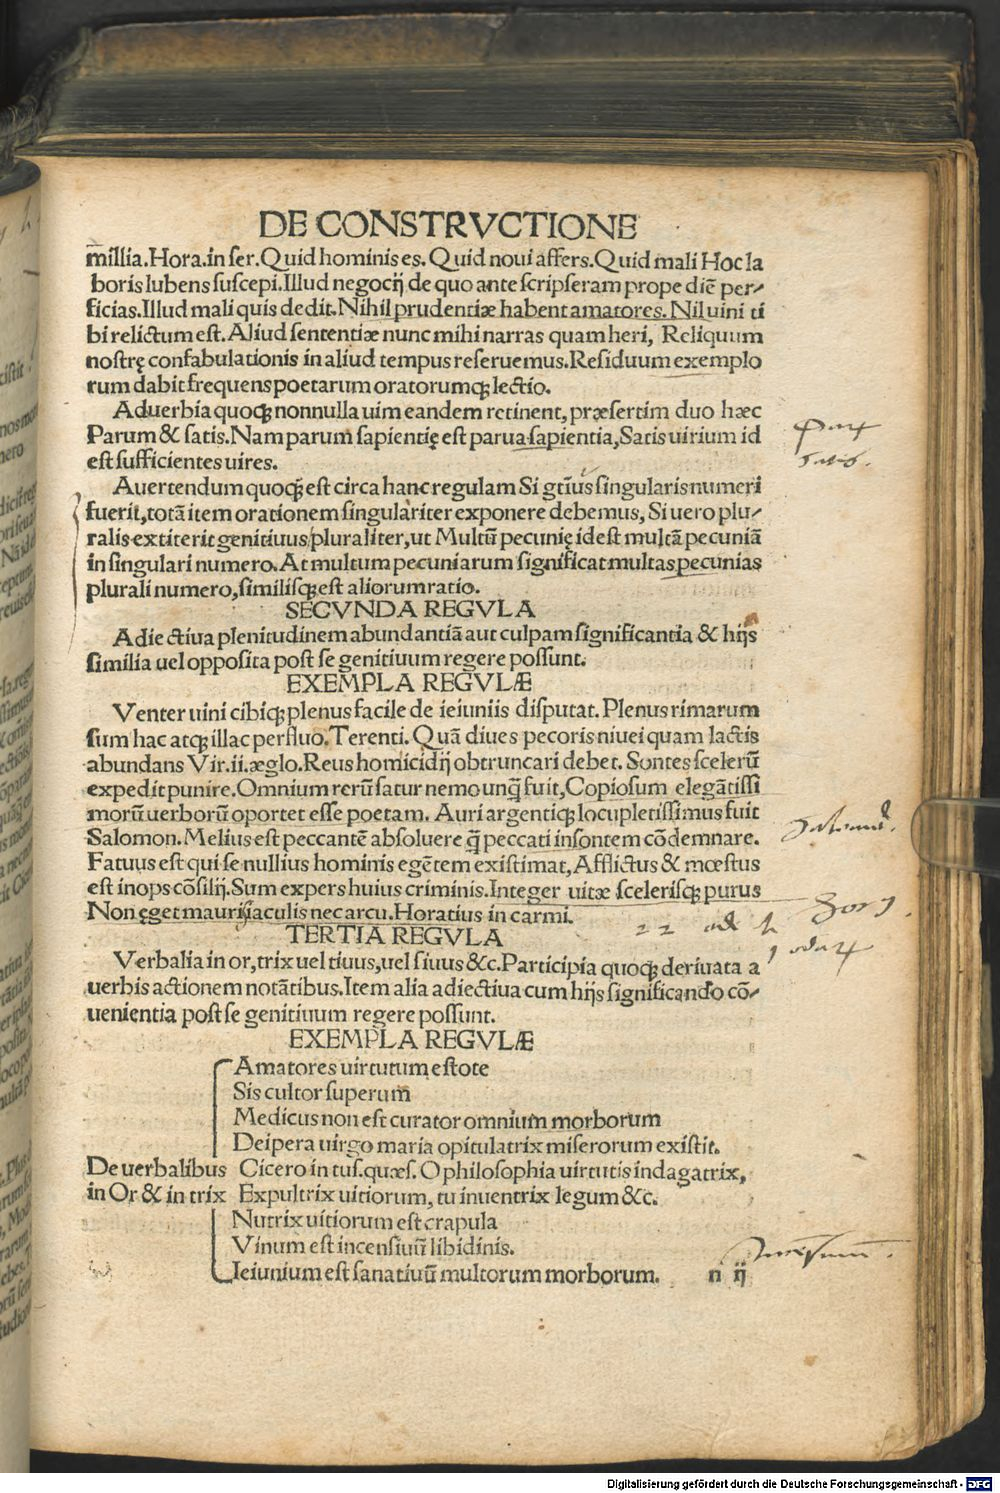 DE CONSTRVCTIONE
m̃illia.Hora.in ſer.Quid hominis es.Quid noui affers.Quid mali Hoc la
boris lubens ſuſcepi.Illud negocij de quo ante ſcripſeram prope diē per⸗
ficias.Illud mali quis dedit.Nihil prudentiæ habent amatores.Nil uini ti
bi relictum eſt.Aliud ſententiæ nunc mihi narras quam heri, Reliquum
noſtrę confabulationis in aliud tempus reſeruemus.Reſiduum exemplo
rum dabit frequens poetarum oratorumqꝫ lectio.
Aduerbia quoqꝫ nonnulla uim eandem retinent, præſertim duo hæc
Parum & ſatis.Nam parum ſapientię eſt parua ſapientia, Satis uirium id
eſt ſufficientes uires.
Auertendum quoqꝫ eſt circa hanc regulam Si gtĩuus ſingularis numeri
fuerit, totā item orationem ſingulariter exponere debemus, Si uero plu⸗
ralis extiterit genitiuus pluraliter, ut Multū pecunię id eſt multā pecuniā
in ſingulari numero.At multum pecuniarum ſignificat multas pecunias
plurali numero, ſimilisqꝫ eſt aliorum ratio.
SECVNDA REGVLA
Adiectiua plenitudinem abundantiā aut culpam ſignificantia & hijs
ſimilia uel oppoſita poſt ſe genitiuum regere poſſunt.
EXEMPLA REGVLÆ
Venter uini cibiqꝫ plenus facile de ieiuniis diſputat.Plenus rimarum
ſum hac atqꝫ illac perfluo.Terenti.Quā diues pecoris niuei quam lactis
abundans Vir.ii.æglo.Reus homicidij obtruncari debet.Sontes ſcelerū
expedit punire.Omnium rerū ſatur nemo unq̄ fuit, Copioſum elegātiſſi
morū uerborū oportet eſſe poetam. Auri argentiqꝫ locupletiſſimus fuit
Salomon.Melius eſt peccantē abſoluere q̄ peccati inſontem cōdemnare.
Fatuus eſt qui ſe nullius hominis egētem exiſtimat, Afflictus & mœſtus
eſt inops cōſilij.Sum expers huius criminis.Integer uitæ ſceleriſqꝫ purus
Non ęget mauri iaculis nec arcu.Horatius in carmi.
TERTIA REGVLA
Verbalia in or, trix uel tiuus, uel ſiuus &c.Participia quoqꝫ deriuata a
uerbis actionem notātibus.Item alia adiectiua cum hijs ſignificando cō⸗
uenientia poſt ſe genitiuum regere poſſunt.
EXEMPLA REGVLÆ
Amatores uirtutum eſtote
Sis cultor ſuperum
Medicus non eſt curator omnium morborum
Deipera uirgo maria opitulatrix miſerorum exiſtit.
De uerbalibus Cicero in tuſ.quæſ.O philoſophia uirtutis indagatrix,
in Or & in trix Expultrix uitiorum, tu inuentrix legum &c.
Nutrix uitiorum eſt crapula
Vinum eſt incenſiuū libidinis.
Ieiunium eſt ſanatiuū multorum morborum. n ij
Digitalisierung gefördert durch die Deutsche Forschungsgemeinschaft - DFG